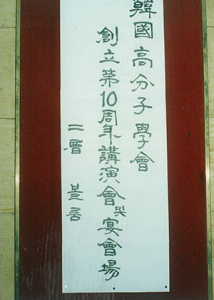 韓國高分子學會
創立第10周年講演會및宴會場
二層 볼룸